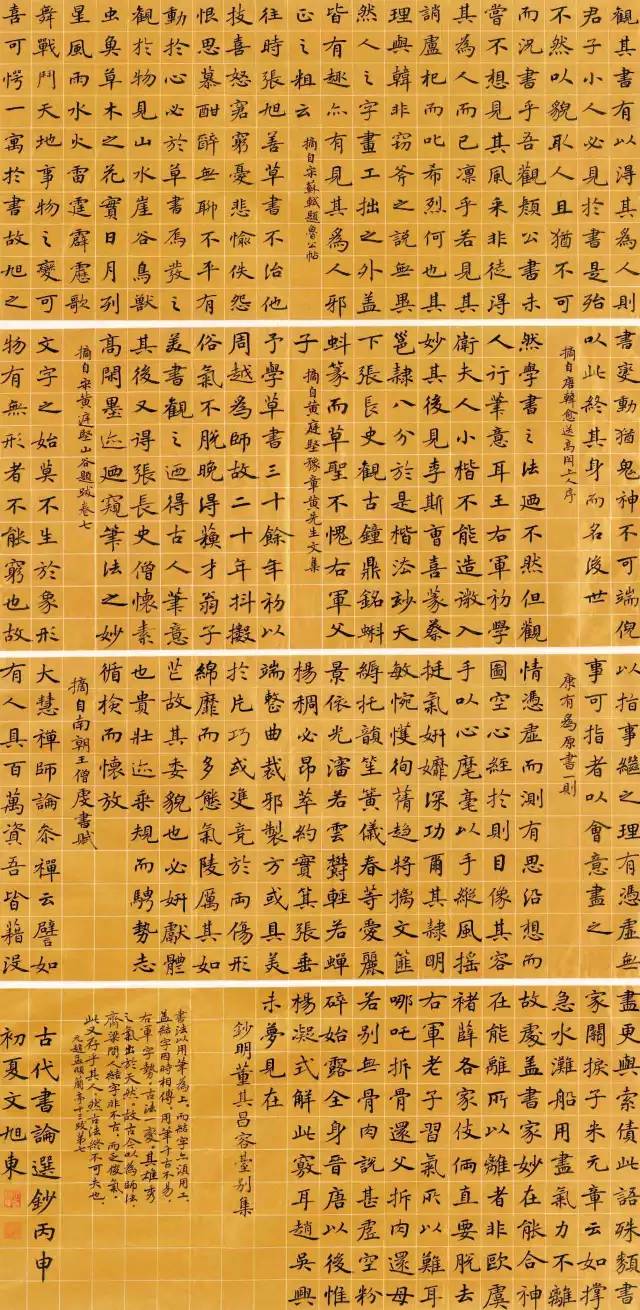 觀其書有以得其為人則
君子小人必見於書是殆
不然以貌取人且猶不可
而況書乎吾觀顏公書未
嘗不想見其風采非徒得
其為人而已凜乎若見其
誚盧杞而叱希烈何也其
理與韓非竊斧之說無異
然人之字畫工拙之外蓋
皆有趣亦有見其為人邪
正之粗云 摘自宋蘇軾題魯公帖
往時張旭善草書不治他
技喜怒窘窮憂悲愉佚怨
恨思慕酣醉無聊不平有
動於心必於草書焉發之
觀於物見山水崖谷鳥獸
虫魚草木之花實日月列
星風雨水火雷霆霹靂歌
舞戰鬥天地事物之變可
喜可愕一寓於書故旭之
書變動猶鬼神不可端倪
以此終其身而名後世
摘自唐韓愈送高閑上人序
然學書之法迺不然但觀
人行筆意耳王右軍初學
衛夫人小楷不能造微入
妙其後見李斯曹喜篆蔡
邕隸八分於是楷法妙天
下張長史觀古鐘鼎銘蝌
蚪篆而草聖不愧右軍父
子 摘自黃庭堅豫章黃先生文集
予學草書三十餘年初以
周越為師故二十年抖擻
俗氣不脫晚得蘇才翁子
美書觀之迺得古人筆意
其後又得張長史僧懷素
高閑墨迹迺窺筆法之妙
摘自宋黃庭堅山谷題跋卷七
文字之始莫不生於象形
物有無形者不能窮也故
以指事繼之理有憑虛無
事可指者以會意盡之
康有為原書一則
情憑虛而測有思沿想而
圖空心經於則目像其容
手以心麾毫以手縱風搖
挺氣妍孊深功爾其隸明
敏婉蠖徇蒨趋將摛文篚
縟托韻笙簧儀春等愛麗
景依光瀋若雲欝輕若蟬
楊稠必昂萃約實箕張垂
端整曲裁邪製方或具美
於片巧或雙競於兩傷形
綿靡而多態氣陵厲其如
芒故其委貌也必妍獻體
也貴壯迹乘規而騁勢志
循檢而懷放
摘自南朝王僧虔書賦
大慧禪師論參禪云譬如
有人具百萬資吾皆藉沒
盡更與索債此語殊類書
家關捩子米元章云如撐
急水灘船用盡氣力不離
故處蓋書家妙在能合神
在能離所以離者非歐虞
褚薛各家伎倆直要脫去
右軍老子習氣所以難耳
哪吒拆骨還父拆肉還母
若別無骨肉說甚虛空粉
碎始露全身晉唐以後惟
楊凝式解此竅耳趙吳興
未夢見在
鈔明董其昌容臺別集
書法以用筆為上，而結字亦須用工。
蓋結字因時相傳，用筆千古不易。
右軍字勢，古法一變，其雄秀
之氣出於天然，故古今以為師法。
齊梁間人結字非不古，而乏俊氣，
此又存乎其人，然古法終不可失也。
元趙孟頫蘭亭十三跋第七
古代書論選鈔丙申
初夏文旭東